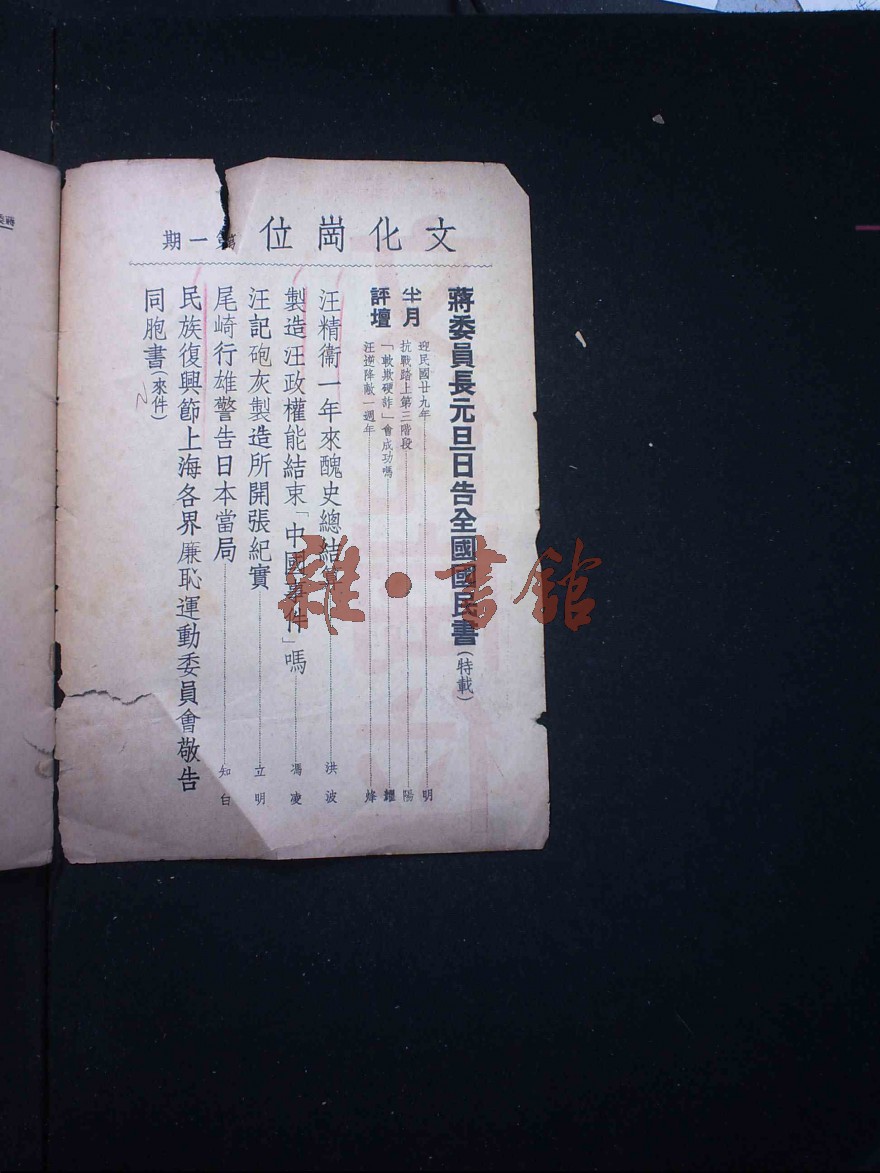 文化崗位 第一期
蔣委員長元旦日告全國國民書(特載)
半月評壇
迎民國廿九年 明
抗戰踏上第三階段 陽
「軟欺硬詐」會成功嗎 耀
汪逆降敵一週年 烽
汪精衞一年來醜史總結算 洪波
製造汪政權能結束「中國事件」嗎 馮凌
汪記砲灰製造所開張紀實 立明
尾崎行雄警告日本當局 知白
民族復興節上海各界廉恥運動委員會敬告
同胞書(來件)
雜·書館